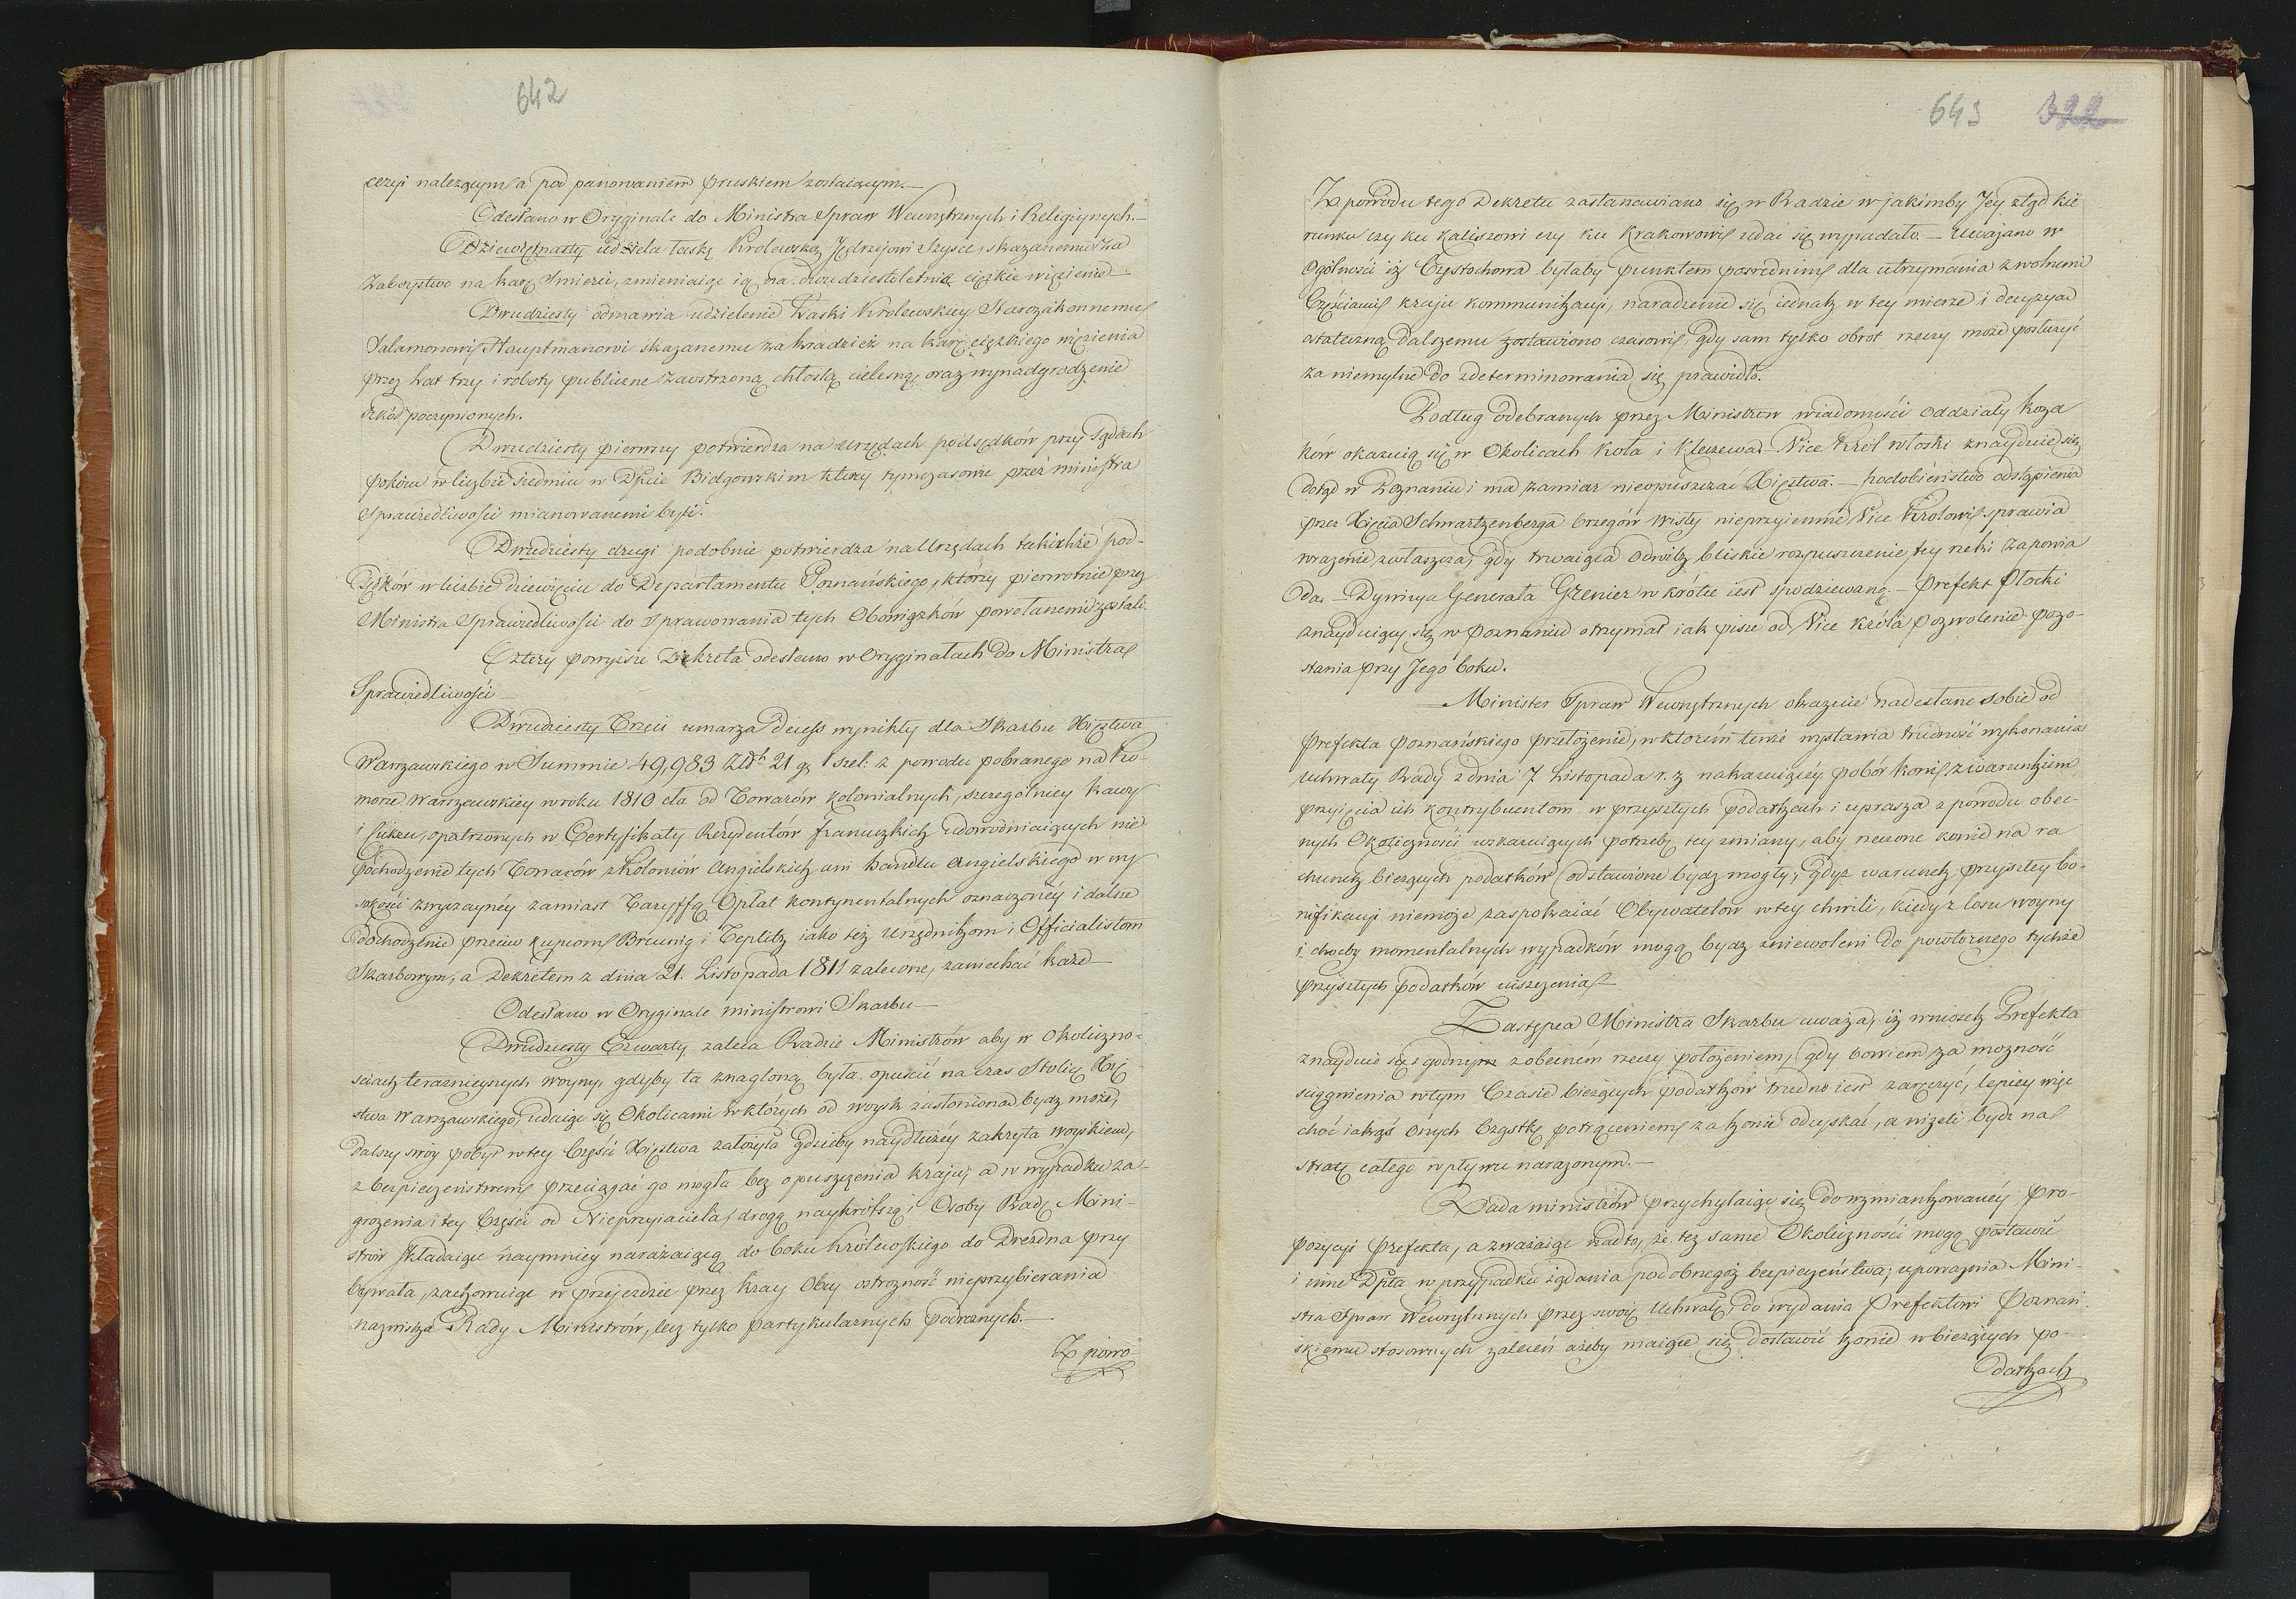 642
cezyi należącym a pod panowaniem pruskiem zostaiącym.—
Odesłano w Oryginale do Ministra Spraw Wewnętrznych i Religiynych.—
Dziewiętnasty udziela łaskę Krolewską Jędrzejowi Szysce, skazanemu za
Zaboystwo na karę Smierci, zmieniaiąc ią na dwudziestoletnie ciężkie więzienie—
Dwudziesty odmawia udzielenie Łaski Krolewskiey Starozakonnemu
Salamonowi Hauptmanowi skazanemu za kradzież na karę ciężkiego więzienia
przez lat trzy i roboty publiczne zaostrzoną chłostą cielesną, oraz wynadgrodzenie
szkód poczynionych.
Dwudziesty pierwszy potwierdza na Urzędach podsędków przy Sądach
pokoiu w liczbie siedmiu w Dpcie Bidgowskim którzy tymczasowie przez ministra
Sprawiedliwości mianowanemi byli.
Dwudziesty drugi podobnie potwierdza na Urzędach takichże pod-
sędków w liczbie dziewięciu do Departamentu Poznańskiego, którzy pierwotnie przez
Ministra Sprawiedliwości do sprawowania tych Obowiązków powołanemi zostali.
Cztery powyższe Dekreta odesłano w Oryginałach do Ministra
Sprawiedliwości—
Dwudziesty Trzeci umarza Decess wynikły dla Skarbu Xięztwa
Warszawskiego w Summie 49,983 Złt 21 g 1 szel. z powodu pobranego na Ko-
morze Warszawskiey w roku 1810 cła od Towarów kolonialnych, szczególniey kawy
i cukru, opatrzonych w Certyfikaty Rezydentów francuzkich udowodniaiących nie
pochodzenie tych Towarów z koloniów Angielskich ani handlu Angielskiego w wy-
sokości zwyczayney zamiast Taryffą Opłat kontynentalnych oznaczoney i dalsze
dochodzenie przeciw kupcom Breunig i Teplitz iako też Urzędnikom i Officialistom
Skarbowym, a Dekretem z dnia 21. Listopada 1811 zalecone, zaniechać każe—
Odesłano w Oryginale ministrowi Skarbu—
Dwudziesty Czwarty zaleca Radzie Ministrów aby w Okoliczno-
sciach teraznieyszych woyny, gdyby ta znagloną była opuścić na czas Stolicę Xię-
stwa Warszawskiego, udaiąc się Okolicami w których od woysk zasłonioną bydz może,
dalszy swóy pobyt w tey Części Xięztwa założyła gdzieby naydłużey zakryta woyskiem,
z bezpieczeństwem przeciągać go mogła bez opuszczenia kraiu, a w wypadku za-
grożenia i tey Części od Nieprzyiaciela, drogą naykrótszą i Osoby Radę Mini-
strów składaiące naymniey narażaiącą do boku Królewskiego do Drezdna przy
bywała, zachowuiąc w przejezdzie przez kray Obcy ostrożność nieprzybierania
nazwiska Rady Ministrów, lecz tylko partykularnych podróżnych.—
Z powo-
643 322
Z powodu tego Dekretu zastanawiano się w Radzie w jakimby Jey ztąd kie
runku czy ku Kaliszowi czy ku Krakowowi udać się wypadało — Uważano w
Ogólności iż Częstochowa byłaby punktem posrednim dla utrzymania z wolnemi
Częściami kraju kommunikacyi, naradzenie się iednak w tey mierze i decyzyą
ostateczną dalszemu zostawiono czasowi, gdy sam tylko obrot rzeczy może posłużyć
za niemylne do zdeterminowania się prawidło.
Podług odebranych przez Ministrow wiadomości Oddziały Koza
ków okazuią się w Okolicach Koła i Kleczewa. Vice Król włoski znayduie się
dotąd w Poznaniu i ma zamiar nieopuszczać Xięztwa. — podobieństwo odstąpienia
przez Xięcia Schwartzenberga brzegów Wisły nieprzyiemne Vice Królowi sprawia
wrażenie, zwłaszcza, gdy trwaiąca odwilż bliskie rozpuszczenie tey rzeki zapowia
da. — Dywizya Generała Grenier w krótce iest spodziewaną. — Prefekt Płocki
znayduiący się w Poznaniu otrzymał iak pisze od Vice Króla pozwolenie pozo-
stania przy Jego boku.
Minister Spraw Wewnętrznych okazuie nadesłane sobie od
Prefekta Poznańskiego przełożenie, w którem tenże wystawia trudność wykonania
Uchwały Rady z dnia 7 Listopada r. z. nakazuiącéy pobór koni z warunkiem
przyięcia ich kontrybuentom w przyszłych podatkach i uprasza z powodu obec-
nych Okoliczności wskazuiących potrzebę tey zmiany, aby rzeczone konie na ra
chunek bieżących podatków odstawione bydz mogły, gdyż warunek przyszłey bo-
nifikacyi niemoże zaspokaiać Obywatelów w tey chwili, kiedy z losu woyny
i choćby momentalnych wypadków mogą bydz zniewoleni do powtórnego tychże
przyszłych podatków uiszczenia—
Zastępca Ministra Skarbu uważa, iż wniosek Prefekta
znayduie się zgodnym z obecném rzeczy położeniem, gdy bowiem za możność
sciągnienia w tym Czasie bieżących podatków trudno iest zaręczyć, lepiey więc
choć iakąś onych Cząstkę potrąceniem za konie odzyskać, aniżeli bydz na
stratę całego wpływu narażonym.—
Rada ministrów przychylaiąc się do wzmiankowanéy pro-
pozycyi Prefekta, a zważaiąc nadto, że też same Okoliczności mogą postawić
i inne Dpta w przypadku żądania podobnegoż bezpieczeństwa; upoważnia Mini-
stra Spraw Wewnętrznych przez swoię Uchwałę, do wydania Prefektowi Poznań
skiemu stosownych zaleceń ażeby maiące się dostawić konie w bieżących po-
datkach